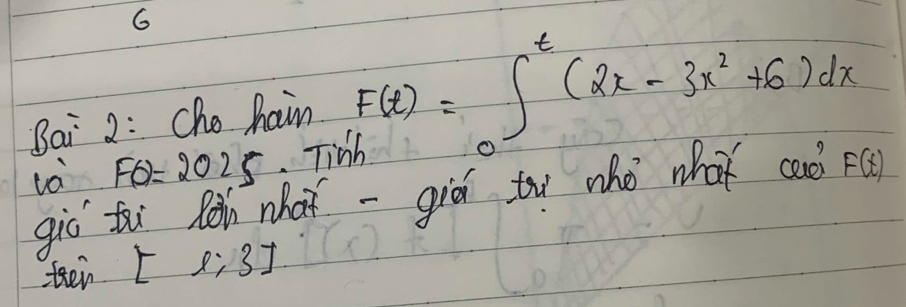 6
Bài 2: Cho hàm F(t) = ∫₀ᵗ (2x - 3x² + 6)dx
và F(0)=2025. Tính
giá trị lớn nhất - giá trị nhỏ nhất của F(t)
trên [ 1; 3]